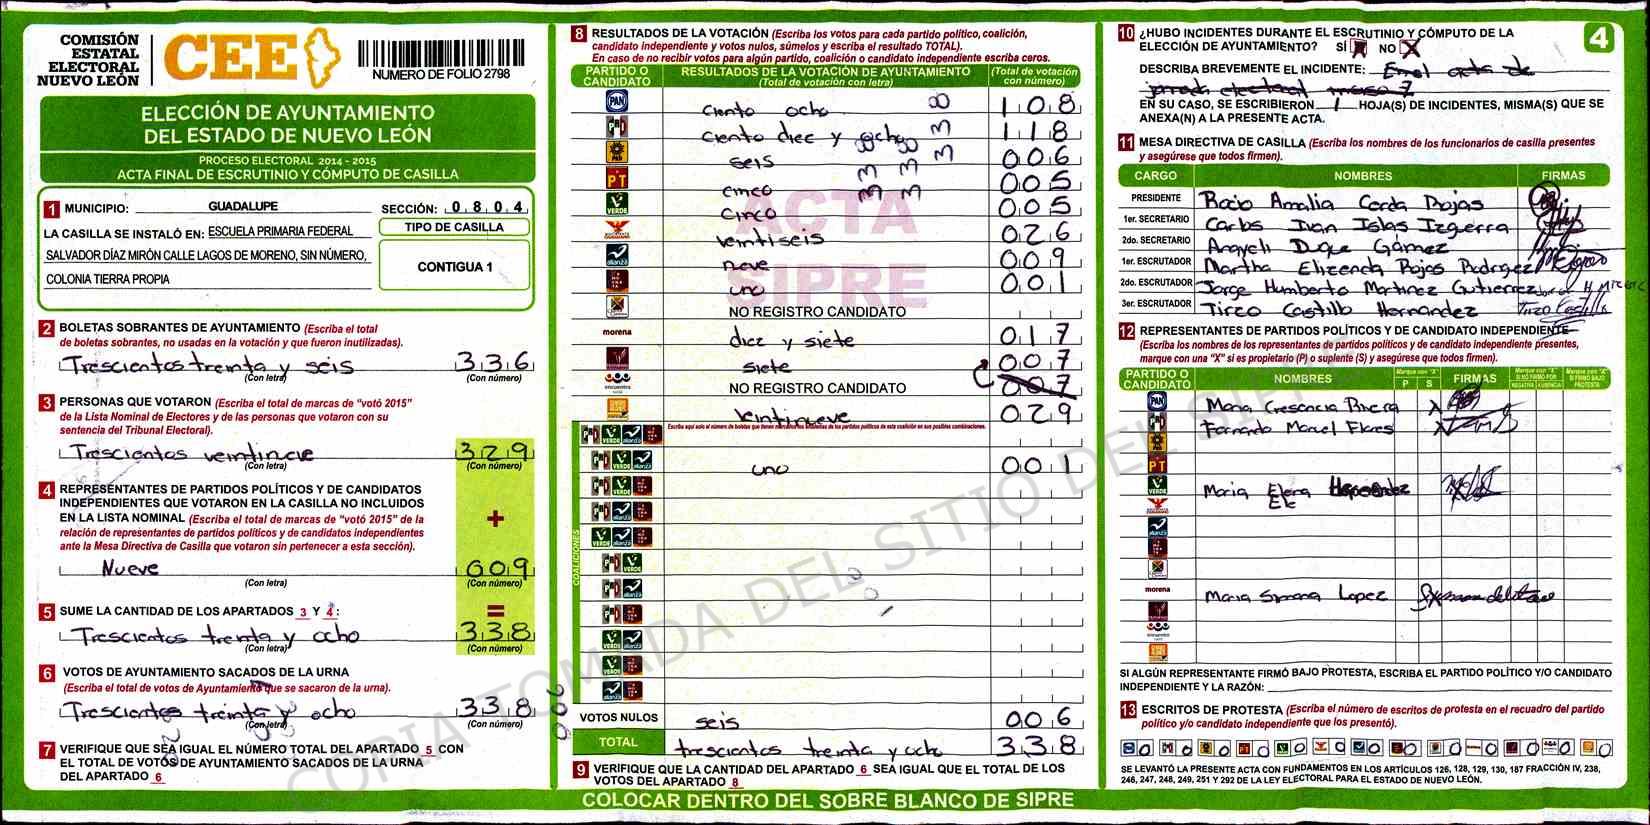 COMISIÓN
ESTATAL
ELECTORAL
NUEVO LEÓN
CEE
NUMERO DE FOLIO 2798
ELECCIÓN DE AYUNTAMIENTO
DEL ESTADO DE NUEVO LEÓN
PROCESO ELECTORAL 2014 - 2015
ACTA FINAL DE ESCRUTINIO Y CÓMPUTO DE CASILLA
1 MUNICIPIO: GUADALUPE SECCIÓN: 0 8 0 4
LA CASILLA SE INSTALÓ EN: ESCUELA PRIMARIA FEDERAL
SALVADOR DÍAZ MIRÓN CALLE LAGOS DE MORENO, SIN NÚMERO,
COLONIA TIERRA PROPIA
TIPO DE CASILLA
CONTIGUA 1
2 BOLETAS SOBRANTES DE AYUNTAMIENTO (Escriba el total
de boletas sobrantes, no usadas en la votación y que fueron inutilizadas).
Trescientos treinta y seis 3 3 6
(Con letra) (Con número)
3 PERSONAS QUE VOTARON (Escriba el total de marcas de “votó 2015”
de la Lista Nominal de Electores y de las personas que votaron con su
sentencia del Tribunal Electoral).
Trescientos 3 2 9
(Con letra) (Con número)
4 REPRESENTANTES DE PARTIDOS POLÍTICOS Y DE CANDIDATOS
INDEPENDIENTES QUE VOTARON EN LA CASILLA NO INCLUIDOS
EN LA LISTA NOMINAL (Escriba el total de marcas de “votó 2015” de la
relación de representantes de partidos políticos y de candidatos independientes
ante la Mesa Directiva de Casilla que votaron sin pertenecer a esta sección).
+
Nueve 0 0 9
(Con letra) (Con número)
5 SUME LA CANTIDAD DE LOS APARTADOS 3 Y 4: =
Trescientos treinta y ocho 3 3 8
(Con letra) (Con número)
6 VOTOS DE AYUNTAMIENTO SACADOS DE LA URNA
(Escriba el total de votos de Ayuntamiento que se sacaron de la urna).
Trescientos treinta y ocho 3 3 8
(Con letra) (Con número)
7 VERIFIQUE QUE SEA IGUAL EL NÚMERO TOTAL DEL APARTADO 5 CON
EL TOTAL DE VOTOS DE AYUNTAMIENTO SACADOS DE LA URNA
DEL APARTADO 6
8 RESULTADOS DE LA VOTACIÓN (Escriba los votos para cada partido político, coalición,
candidato independiente y votos nulos, súmelos y escriba el resultado TOTAL).
En caso de no recibir votos para algún partido, coalición o candidato independiente escriba ceros.
PARTIDO O CANDIDATO RESULTADOS DE LA VOTACIÓN DE AYUNTAMIENTO (Total de votación con letra) (Total de votación con número)
PAN ciento ocho 1 0 8
PRI ciento diez y ocho 1 1 8
PRD seis 0 0 6
PT cinco 0 0 5
VERDE cinco 0 0 5
veintiseis 0 2 6
alianza nueve 0 0 9
uno 0 0 1
NO REGISTRO CANDIDATO
morena diez y siete 0 1 7
siete 0 0 7
encuentro NO REGISTRO CANDIDATO 0 0 7
veintinueve 0 2 9
Escriba aquí solo el número de boletas que tienen marcados los emblemas de los partidos políticos de esta coalición en sus posibles combinaciones.
COALICIONES
PRI VERDE alianza
PRI VERDE alianza uno 0 0 1
PRI VERDE
PRI alianza
VERDE alianza
PRI VERDE
PRI alianza
PRI
VERDE alianza
VERDE
alianza
VOTOS NULOS seis 0 0 6
TOTAL trescientos treinta y ocho 3 3 8
9 VERIFIQUE QUE LA CANTIDAD DEL APARTADO 6 SEA IGUAL QUE EL TOTAL DE LOS
VOTOS DEL APARTADO 8
COLOCAR DENTRO DEL SOBRE BLANCO DE SIPRE
ACTA
SIPRE
COPIA TOMADA DEL SITIO DEL SIPRE
4
10 ¿HUBO INCIDENTES DURANTE EL ESCRUTINIO Y CÓMPUTO DE LA
ELECCIÓN DE AYUNTAMIENTO? SÍ NO X
DESCRIBA BREVEMENTE EL INCIDENTE: En el acta de
jornada electoral
EN SU CASO, SE ESCRIBIERON 1 HOJA(S) DE INCIDENTES, MISMA(S) QUE SE
ANEXA(N) A LA PRESENTE ACTA.
11 MESA DIRECTIVA DE CASILLA (Escriba los nombres de los funcionarios de casilla presentes
y asegúrese que todos firmen).
CARGO NOMBRES FIRMAS
PRESIDENTE Rocio Amalia Cerda Rojas
1er. SECRETARIO Carlos Ivan Islas Izgerra
2do. SECRETARIO Anayeli Duque Gámez
1er. ESCRUTADOR Martha Elizenda Rojas Rodrigez
2do. ESCRUTADOR Jorge Humberto Martinez Gutierrez
3er. ESCRUTADOR Tirzo Castillo Hernandez Tirzo Castillo
12 REPRESENTANTES DE PARTIDOS POLÍTICOS Y DE CANDIDATO INDEPENDIENTE
(Escriba los nombres de los representantes de partidos políticos y de candidato independiente presentes,
marque con una “X” si es propietario (P) o suplente (S) y asegúrese que todos firmen).
PARTIDO O CANDIDATO NOMBRES Marque con "X" P S FIRMAS Marque con "X" SI NO FIRMÓ POR NEGATIVA AUSENCIA Marque con "X" SI FIRMÓ BAJO PROTESTA
PAN Maria Cresencia Rivera X
PRI Fernando Manuel Flores X
PRD
PT
VERDE Maria Elena Hernández
Ele
alianza
morena Maria Simona Lopez
encuentro
SI ALGÚN REPRESENTANTE FIRMÓ BAJO PROTESTA, ESCRIBA EL PARTIDO POLÍTICO Y/O CANDIDATO
INDEPENDIENTE Y LA RAZÓN:
13 ESCRITOS DE PROTESTA (Escriba el número de escritos de protesta en el recuadro del partido
político y/o candidato independiente que los presentó).
0 0 0 0 0 0 0 0 0 0 0 0 0
SE LEVANTÓ LA PRESENTE ACTA CON FUNDAMENTOS EN LOS ARTÍCULOS 126, 128, 129, 130, 187 FRACCIÓN IV, 238,
246, 247, 248, 249, 251 Y 292 DE LA LEY ELECTORAL PARA EL ESTADO DE NUEVO LEÓN.